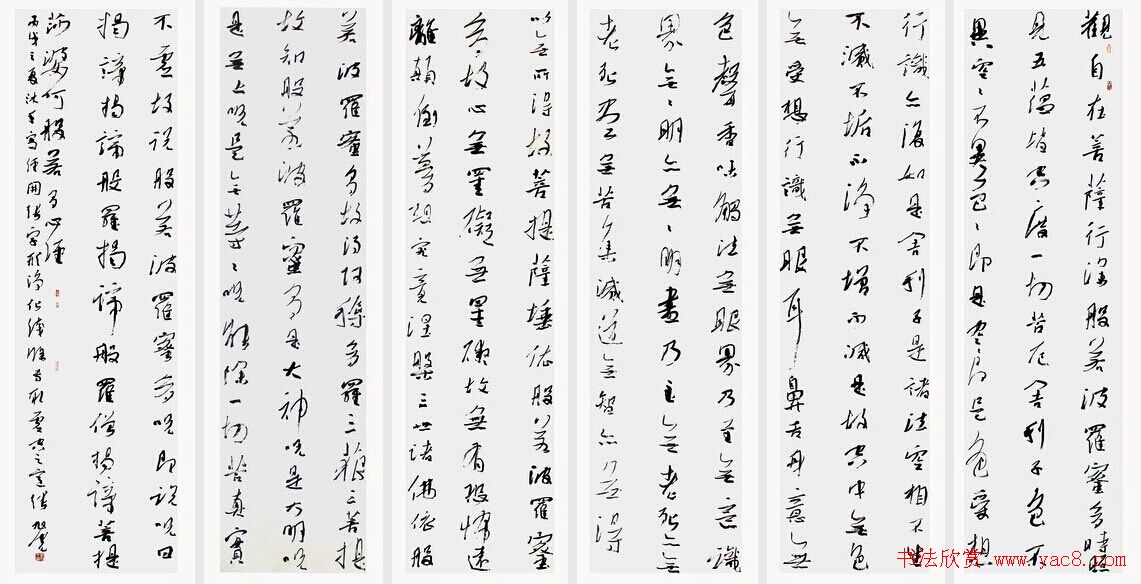 觀自在菩薩行深般若波羅蜜多時照
見五蘊皆空度一切苦厄舍利子色不
異空々不異色々即是空々即是色受想
行識亦復如是舍利子是諸法空相不生
不滅不垢不淨不增不減是故空中無色
無受想行識無眼耳鼻舌身意無
色聲香味觸法無眼界乃至無意識
界無々明亦無々明盡乃至無老死亦無
老死盡無苦集滅道無智亦無得
以無所得故菩提薩埵依般若波羅蜜
多故心無罣礙無罣礙故無有恐怖遠
離顛倒夢想究竟涅槃三世諸佛依般
若波羅蜜多故得阿耨多羅三藐三菩提
故知般若波羅蜜多是大神咒是大明咒
是無上咒是無等々咒能除一切苦真實
不虛故說般若波羅蜜多咒即說咒曰
揭諦揭諦般羅揭諦般羅僧揭諦菩提
莎婆何般若多心經
丙戌之夏沐手寫經
书法欣赏 www.yac8.com